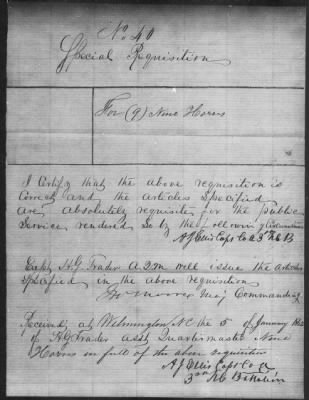 No 40
Special Requisition
For (9) Nine Horns
I Certify that the above requisition is
Correct and the articles Specified
are absolutely requisite for the Public
Service rendered So by the following Circumstances
A J Ellis Capt Co A 3rd NC B
Capt H.G. Trader A.Q.M. will issue the articles
Specified in the above requisition
Moore Maj Commanding
Received at Wilmington NC the 5 of January
of H G Trader asst Quartermaster Nine
Horns in full of the above requisition
A J Ellis Capt Co A
3rd NC Battalion